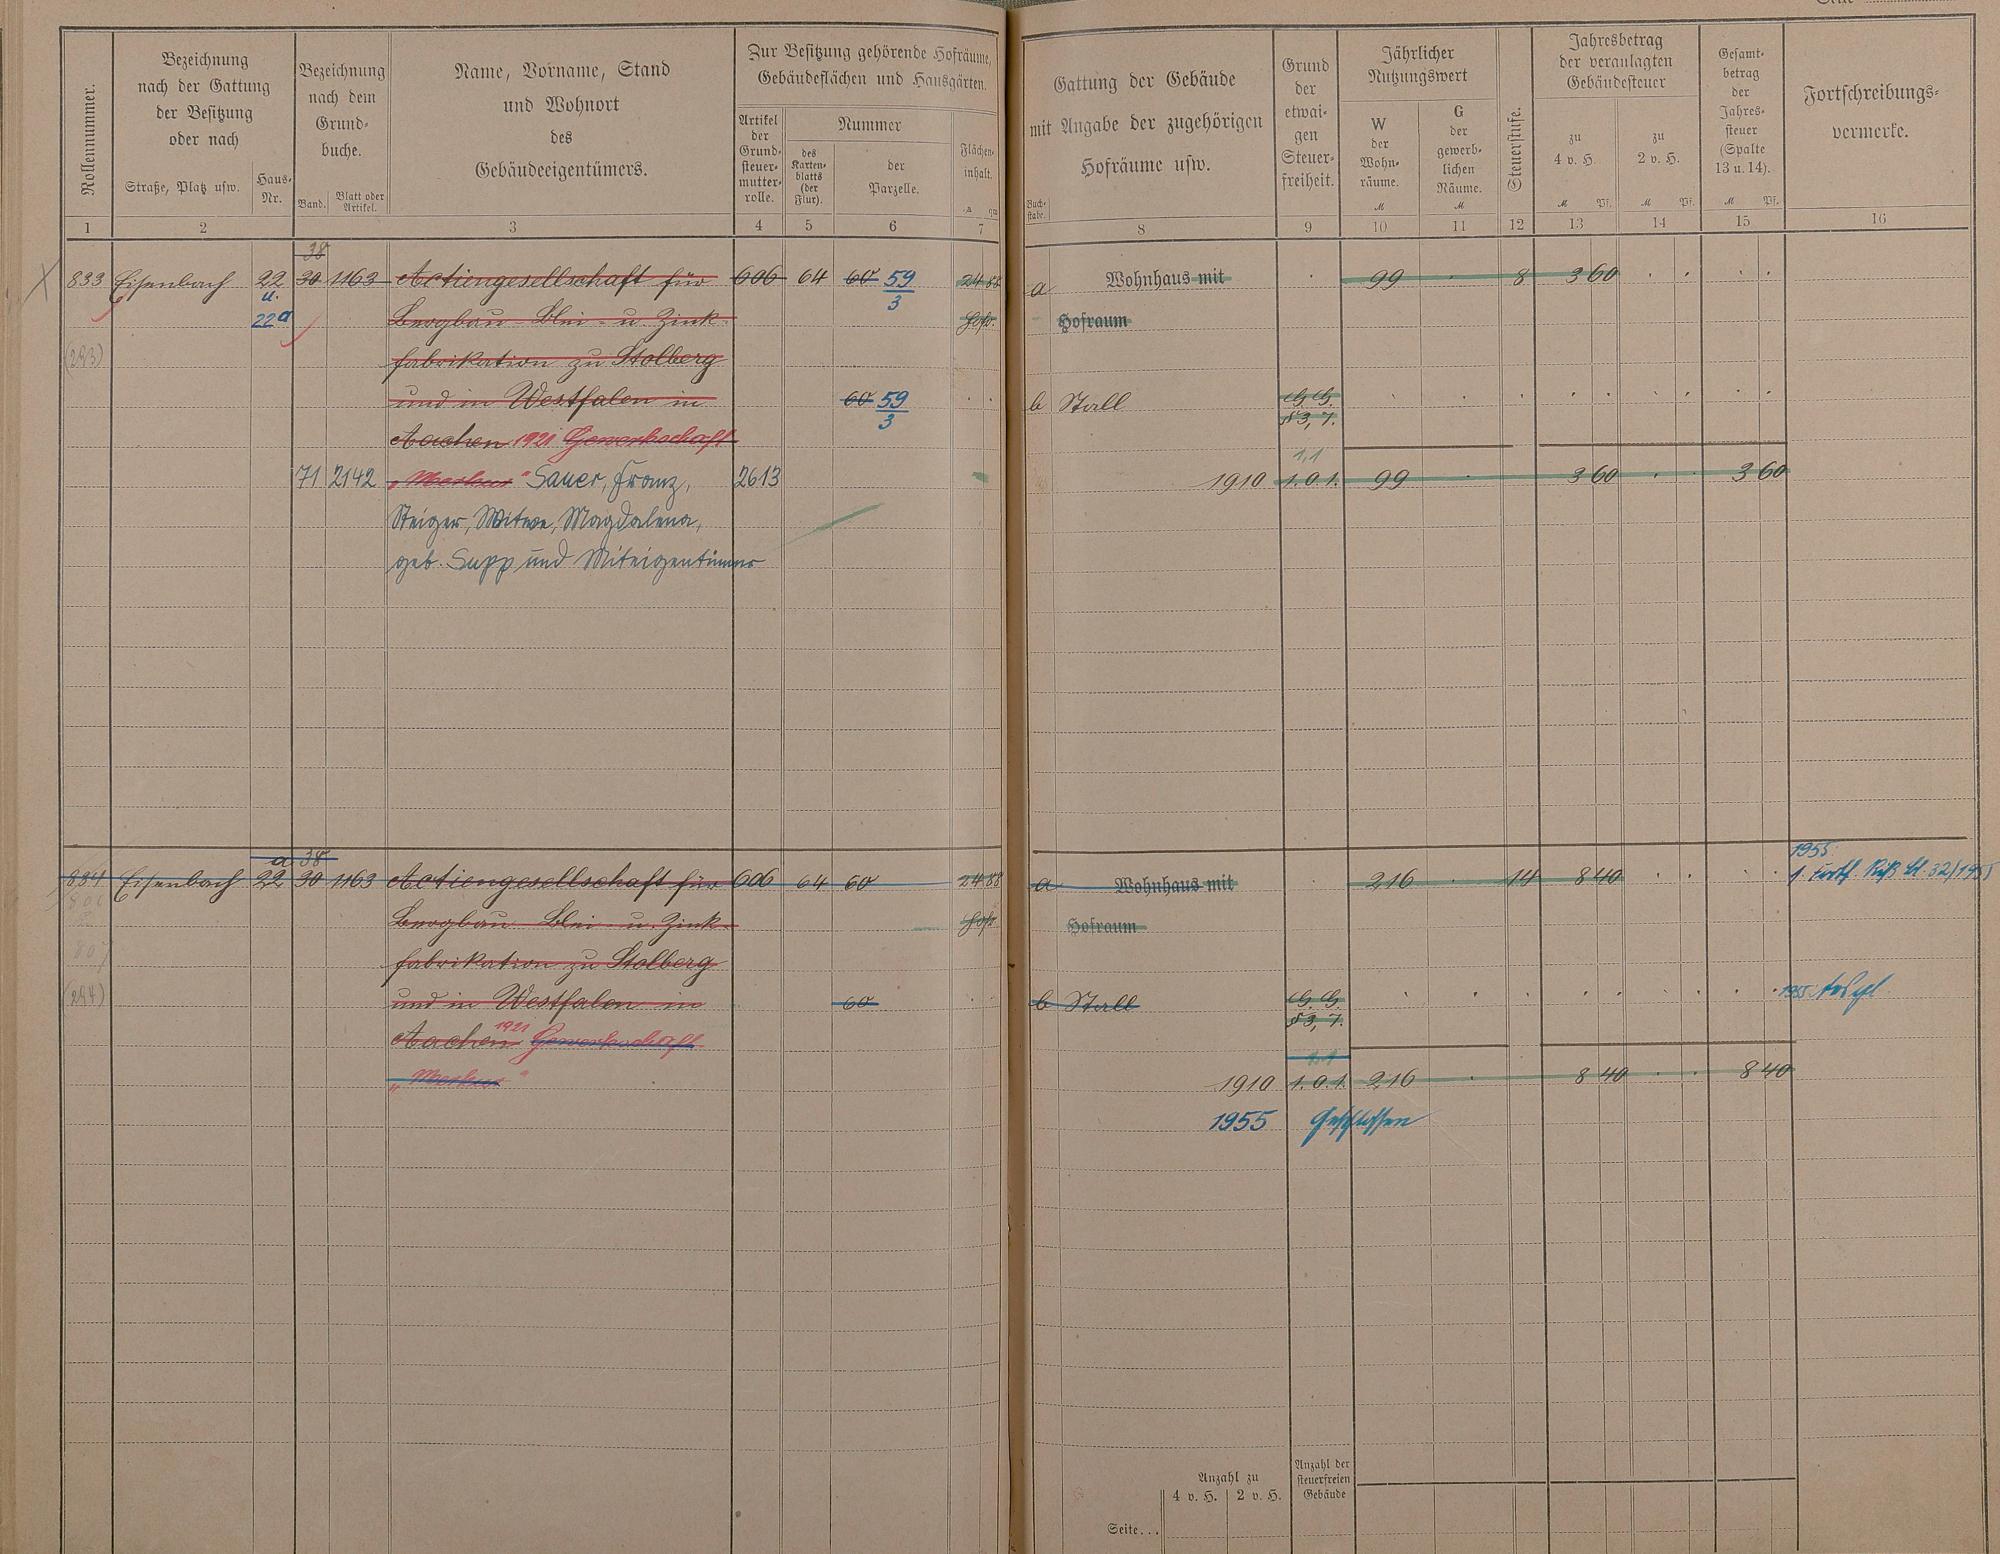 Seite
Rollennummer.
Bezeichnung
nach der Gattung
der Besitzung
oder nach
Straße, Platz usw.
Haus-
Nr.
Bezeichnung
nach dem
Grund-
buche.
Band.
Blatt oder
Artikel.
Name, Vorname, Stand
und Wohnort
des
Gebäudeeigentümers.
Zur Besitzung gehörende Hofräume,
Gebäudeflächen und Hausgärten.
Artikel
der
Grund-
steuer-
mutter-
rolle.
Nummer
des
Karten-
blatts
(der
Flur).
der
Parzelle.
Flächen-
inhalt.
a qm
Gattung der Gebäude
mit Angabe der zugehörigen
Hofräume usw.
Buch-
stabe.
Grund
der
etwai-
gen
Steuer-
freiheit.
Jährlicher
Nutzungswert
W
der
Wohn-
räume.
M
G
der
gewerb-
lichen
Räume.
M
Steuerstufe.
Jahresbetrag
der veranlagten
Gebäudesteuer
zu
4 v. H.
M Pf.
zu
2 v. H.
M Pf.
Gesamt-
betrag
der
Jahres-
steuer
(Spalte
13 u. 14).
M Pf.
Fortschreibungs-
vermerke.
1 2 3 4 5 6 7 8 9 10 11 12 13 14 15 16
38
833 Eisenbach 22 30 1163 Actiengesellschaft für 606 64 60 59/3 24 88 a Wohnhaus mit 99 8 3 60
u.
22a Bergbau- Blei- u. Zink- Hofr. Hofraum
(293) fabrikation zu Stolberg
und in Westfalen in 60 59/3 b Stall G. G.
§ 3, 7.
Aachen 1921 Gewerkschaft
1,1
71 2142 „Merkur" Sauer, Franz, 2613 1910 1.0.1. 99 3 60 3 60
Steiger, Witwe, Magdalena,
geb. Supp und Miteigentümer
a 38 1955:
834 Eisenbach 22 30 1163 Actiengesellschaft für 606 64 60 24 88 a Wohnhaus mit 216 14 8 40 32/1955
Bergbau- Blei- u. Zink- Hofr. Hofraum
807 fabrikation zu Stolberg
(294) und in Westfalen in 60 b Stall G. G. 1955
§ 3, 7.
Aachen 1921 Gewerkschaft
1,1
„Merkur" 1910 1.0.1. 216 8 40 8 40
1955 Geschlossen
Anzahl zu
4 v. H. 2 v. H.
Anzahl der
steuerfreien
Gebäude
Seite...